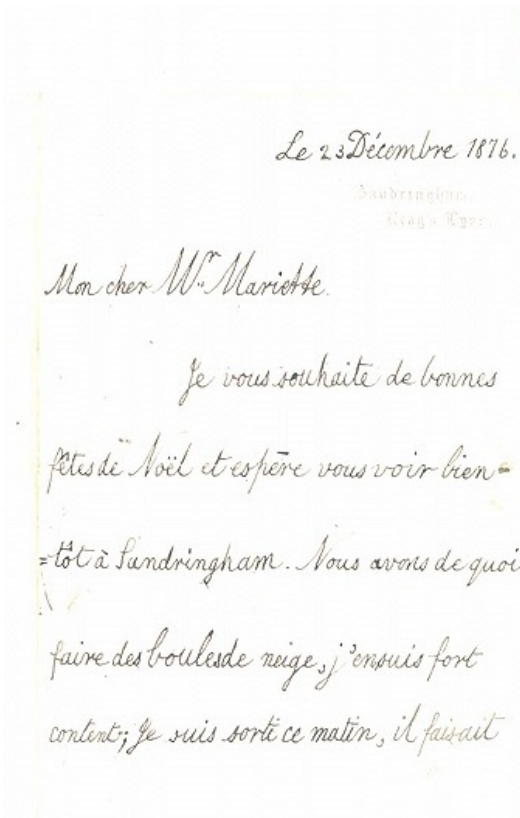 Le 23 Décembre 1876.
Sandringham.
Mon cher Mr. Mariette.
Je vous souhaite de bonnes
fêtes de Noël et espère vous voir bien=
=tôt à Sandringham. Nous avons de quoi
faire des boules de neige, j'en suis fort
content; Je suis sorti ce matin, il faisait